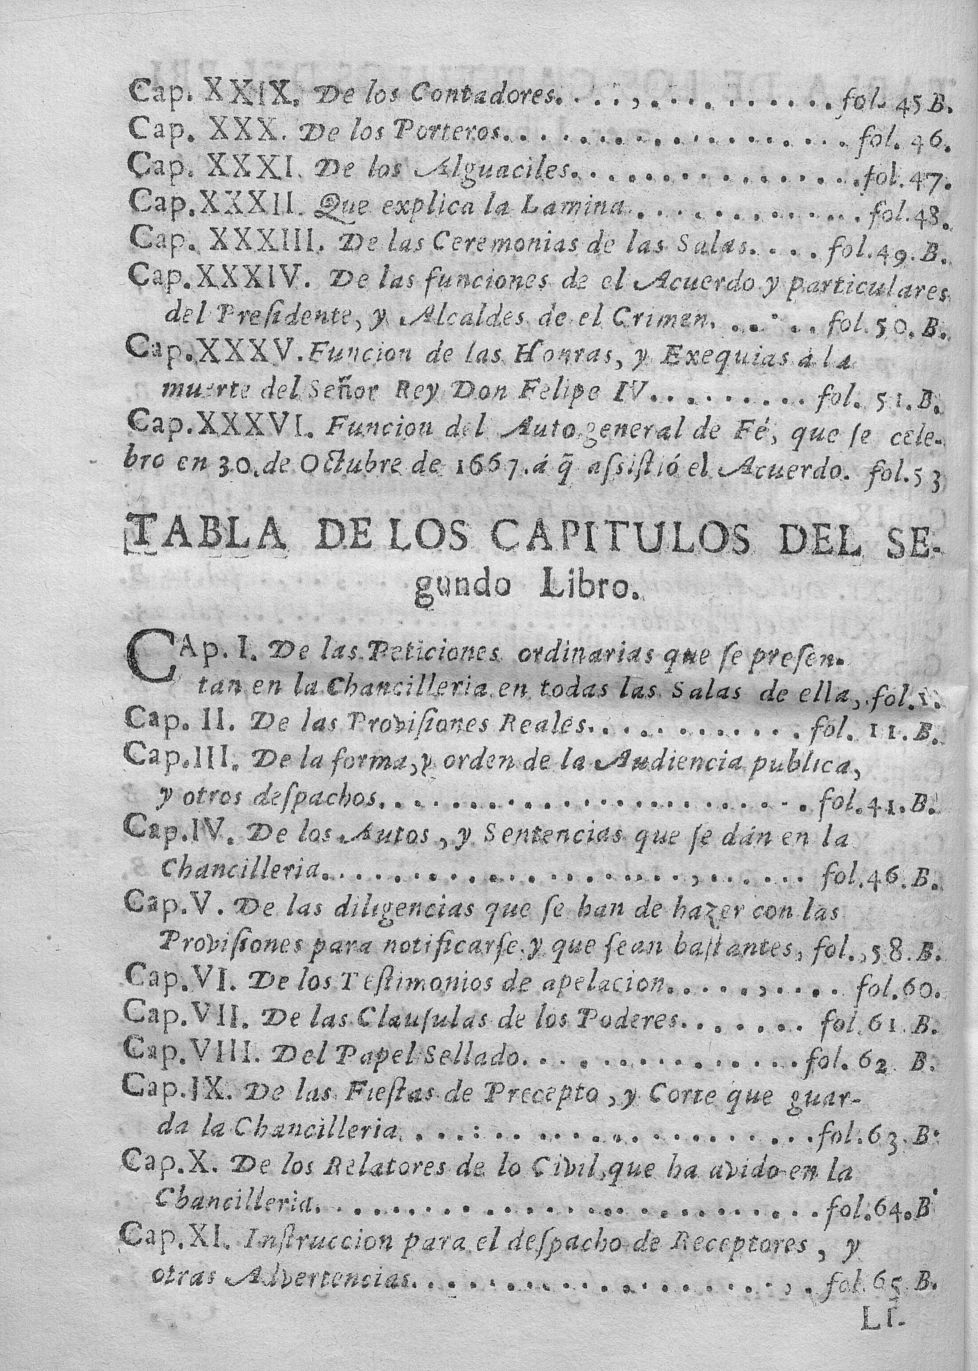 Cap. XXIX. De los Contadores. . . . , . . . . . . . . . . fol. 45 B.
Cap. XXX. De los Porteros. . . . . . . . . . . . . . . . . . fol. 46.
Cap. XXXI. De los Alguaciles. . . . . . . . . . . . . . . . fol. 47.
Cap. XXXII. Que explica la Lamina. . . . . . . . . . . . . fol. 48.
Cap. XXXIII. De las Ceremonias de las Salas. . . . . fol. 49. B.
Cap. XXXIV. De las funciones de el Acuerdo y particulares
del Preſidente, y Alcaldes de el Crimen. . . . . . . fol. 50. B.
Cap. XXXV. Funcion de las Honras, y Exequias á la
muerte del Señor Rey Don Felipe IV. . . . . . . . . . fol. 51. B.
Cap. XXXVI. Funcion del Auto general de Fé, que ſe cele-
bro en 30. de Octubre de 1667. á q̃ aſsiſtió el Acuerdo. fol. 53
TABLA DE LOS CAPITULOS DEL SE-
gundo Libro.
CAp. I. De las Peticiones ordinarias que ſe preſen-
tan en la Chancilleria en todas las Salas de ella, fol. 1.
Cap. II. De las Proviſiones Reales. . . . . . . . . . . . . fol. 11. B.
Cap. III. De la forma, y orden de la Audiencia publica,
y otros deſpachos. . . . . . . . . . . . . . . . . . . . . . . . fol. 41. B.
Cap. IV. De los Autos, y Sentencias que ſe dán en la
Chancilleria. . . . . . . . . . . . . . . . . . . . , . . . . . . fol. 46. B.
Cap. V. De las diligencias que ſe han de hazer con las
Proviſiones para notificarſe, y que ſean baſtantes, fol. , 58. B.
Cap. VI. De los Teſtimonios de apelacion. . . . . , . . . . fol. 60.
Cap. VII. De las Clauſulas de los Poderes. . . . . . . fol. 61. B.
Cap. VIII. Del Papel Sellado. . . . . . . . . . . . . . . . fol. 62 B.
Cap. IX. De las Fieſtas de Precepto, y Corte que guar-
da la Chancilleria. . . . : . . . . . . . . . . . . . . . . . fol. 63. B.
Cap. X. De los Relatores de lo Civil, que ha avido en la
Chancilleria. . . . . . . . . . . . . . . . . . . . . . . . . . . fol. 64. B
Cap. XI. Inſtruccion para el deſpacho de Receptores, y
otras Advertencias. . . . . . . . . . . . . . . . . . . . . , . fol. 65 B.
LI-